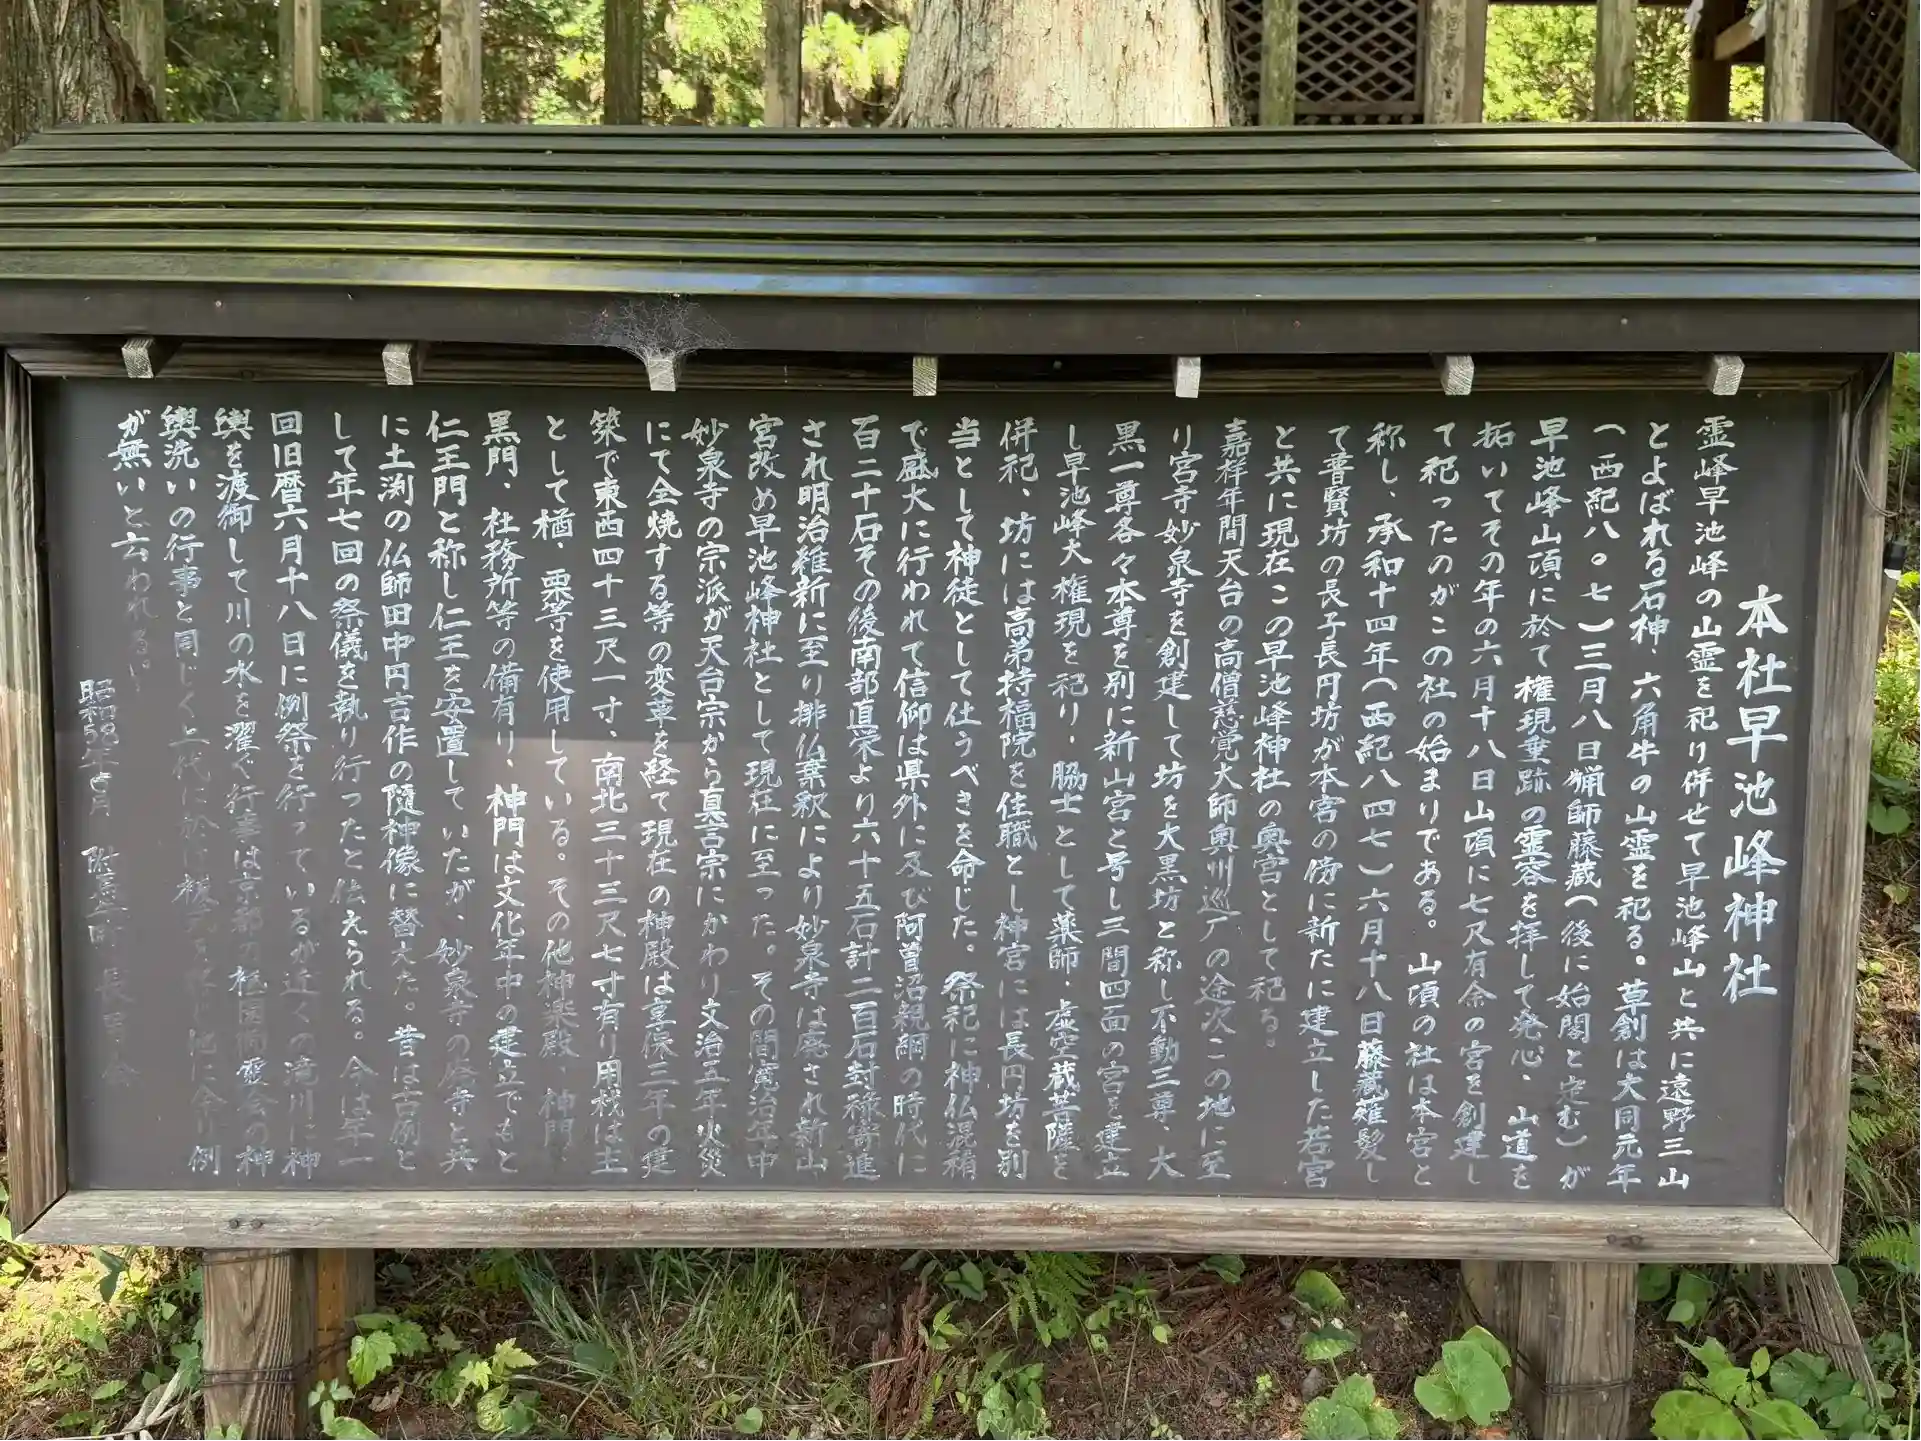 本社早池峰神社
霊峰早池峰の山霊を祀り併せて早池峰山と共に遠野三山
とよばれる石神、六角牛の山霊を祀る。草創は大同元年
(西紀八〇七)三月八日猟師藤蔵(後に始閣と定む)が
早池峰山頂に於て権現垂跡の霊容を拝して発心、山道を
拓いてその年の六月十八日山頂に七尺有余の宮を創建し
て祀ったのがこの社の始まりである。山頂の社は本宮と
称し、承和十四年(西紀八四七)六月十八日藤蔵薙髪し
て普賢坊の長子長円坊が本宮の傍に新たに建立した若宮
と共に現在この早池峰神社の奥宮として祀る。
嘉祥年間天台の高僧慈覚大師奥州巡ḷの途次この地に至
り宮寺妙泉寺を創建して坊を大黒坊と称し不動三尊、大
黒一尊各々本尊を別に新山宮と号し三間四面の宮を建立
し早池峰大権現を祀り、脇士として薬師、虚空蔵菩薩を
併祀、坊には高弟持福院を住職とし神宮には長円坊を別
当として神徒として仕うべきを命じた。祭祀に神仏混稍
で盛大に行われて信仰は県外に及び阿曽沼親綱の時代に
百二十石その後南部直栄より六十五石計二百石封禄寄進
され明治維新に至り排仏棄釈により妙泉寺は廃され新山
宮改め早池峰神社として現在に至った。その間寛治年中
妙泉寺の宗派が天台宗から真言宗にかわり文治五年火災
にて全焼する等の変革を経て現在の神殿は享保三年の建
築で東西四十三尺一寸、南北三十三尺七寸有り用材は主
として楢、栗等を使用している。その他神楽殿、神門、
黒門、社務所等の備有り、神門は文化年中の建立でもと
仁王門と称し仁王を安置していたが、妙泉寺の廃寺と共
に土渕の仏師田中円吉作の随神像に替えた。昔は古例と
して年七回の祭儀を執り行ったと伝えられる。今は年一
回旧暦六月十八日に例祭を行っているが近くの滝川に神
輿を渡御して川の水を濯ぐ行事は京都の祇園御霊会の神
輿洗いの行事と同じく上代に於け 例
が無いと云われる。
昭和58年吉月 附馬牛町 長